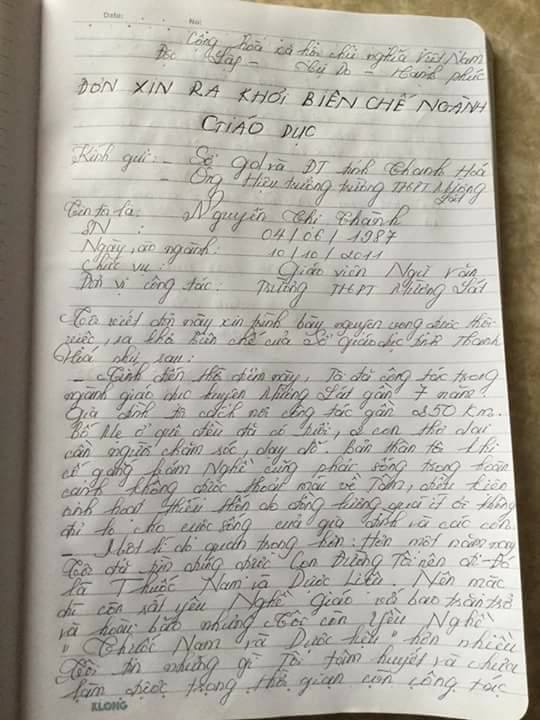 Date: No:
Cộng hoà xã hội chủ nghĩa Việt Nam
Độc Lập - Tự Do - Hạnh phúc
ĐƠN XIN RA KHỎI BIÊN CHẾ NGÀNH
GIÁO DỤC
Kính gửi: - Sở gd và ĐT tỉnh Thanh Hoá
- Ông Hiệu trưởng trường THPT Mường
Lát
Tên tôi là: Nguyễn Chí Thành
SN : 04/06/1987
Ngày vào ngành: 10/10/2011
Chức vụ: Giáo viên Ngữ Văn
Đơn vị công tác: Trường THPT Mường Lát
Tôi viết đơn này xin trình bày nguyện vọng được thôi
việc, ra khỏi biên chế của Sở giáo dục tỉnh Thanh
Hoá như sau:
- Tính đến thời điểm này, Tôi đã công tác trong
ngành giáo dục huyện Mường Lát gần 7 năm.
Gia đình tôi cách nơi công tác gần 250 km.
Bố Mẹ ở quê đều đã có tuổi, 2 con thơ dại
cần người chăm sóc, dạy dỗ. Bản thân tôi khi
cố gắng bám Nghề cũng phải sống trong hoàn
cảnh không được thoải mái về Tâm, điều kiện
sinh hoạt thiếu thốn do đồng lương quá ít ỏi không
đủ lo cho cuộc sống của gia đình và các con.
- Một lí do quan trọng hơn: Hơn một năm nay
Tôi đã tìm đúng được Con Đường Tôi nên đi - Đó
là Thuốc Nam và Dược Liệu. Nên mặc
dù còn rất yêu Nghề giáo với bao trăn trở
và hoài bão nhưng Tôi còn Yêu Nghề
"Thuốc Nam và Dược liệu" hơn nhiều
Tôi tin những gì Tôi tâm huyết và chưa
làm được trong thời gian còn công tác
KLONG